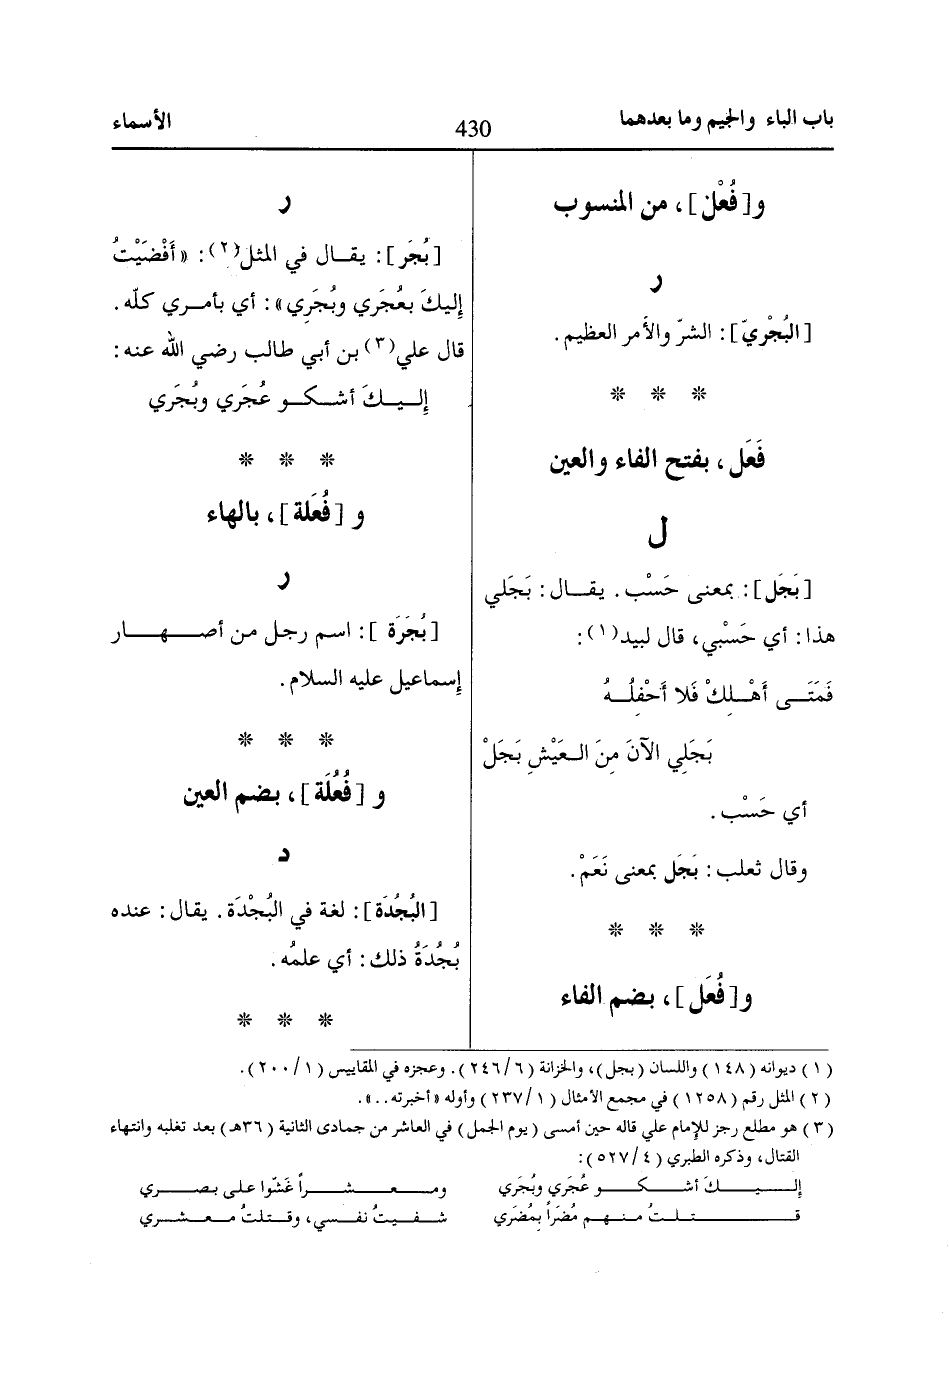 باب الباء والجيم وما بعدهما
430
الأسماء
و[فُعْل]، من المنسوب
ر
[البُجْريّ]: الشرّ والأمر العظيم.
* * *
فَعَل، بفتح الفاء والعين
ل
[بَجَل]: بمعنى حَسْب. يقال: بَجَلي
هذا: أي حَسْبي، قال لبيد(١):
فَمَتَى أَهْلِكْ فَلا أَحْفِلُهُ
بَجَلِي الآنَ مِنَ العَيْشِ بَجَلْ
أي حَسْب.
وقال ثعلب: بَجَل بمعنى نَعَمْ.
* * *
و[فُعَل]، بضم الفاء
ر
[بُجَر]: يقال في المثل(٢): «أَفْضَيْتُ
إليكَ بعُجَري وبُجَرِي»: أي بأمري كلّه.
قال علي(٣) بن أبي طالب رضي الله عنه:
إليكَ أشكو عُجَري وبُجَري
* * *
و [فُعَلة]، بالهاء
ر
[بُجَرَة]: اسم رجل من أصهار
إسماعيل عليه السلام.
* * *
و [فُعُلَة]، بضم العين
د
[البُجُدَة]: لغة في البُجْدَة. يقال: عنده
بُجُدَةُ ذلك: أي علمُه.
* * *
(١) ديوانه (١٤٨) واللسان (بجل)، والخزانة (٢٤٦/٦). وعجزه في المقاييس (٢٠٠/١).
(٢) المثل رقم (١٢٥٨) في مجمع الأمثال (٢٣٧/١) وأوله «أخبرته..».
(٣) هو مطلع رجز للإمام علي قاله حين أمسى (يوم الجمل) في العاشر من جمادى الثانية (٣٦هـ) بعد تغلبه وانتهاء
القتال، وذكره الطبري (٥٢٧/٤):
إليكَ أشكو عُجَري وبُجَري ومعشراً غَشّوا على بصري
قتلتُ منهم مُضَراً بمُضَري شفيتُ نفسي، وقتلتُ معشري